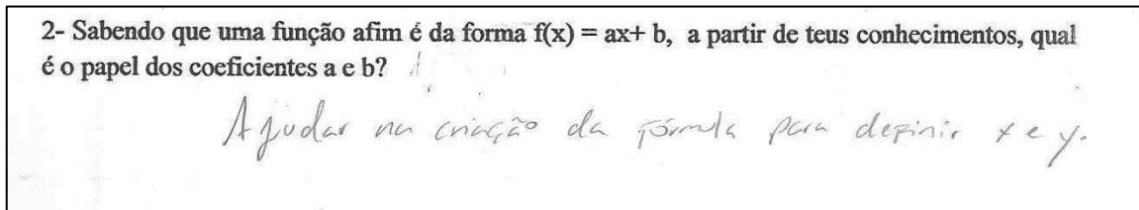 2- Sabendo que uma função afim é da forma f(x) = ax+ b, a partir de teus conhecimentos, qual
é o papel dos coeficientes a e b?
Ajudar na criação da fórmula para definir x e y.